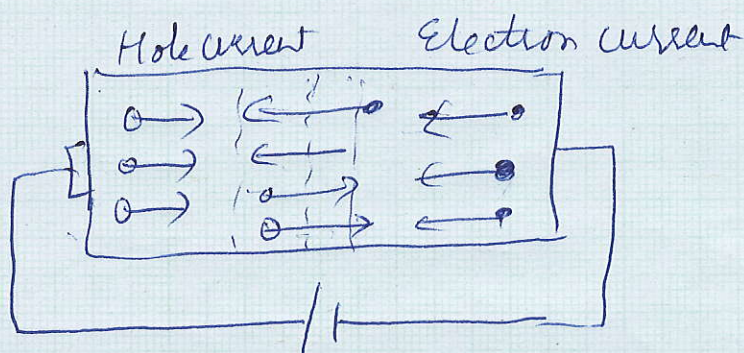 Hole current
Electron current